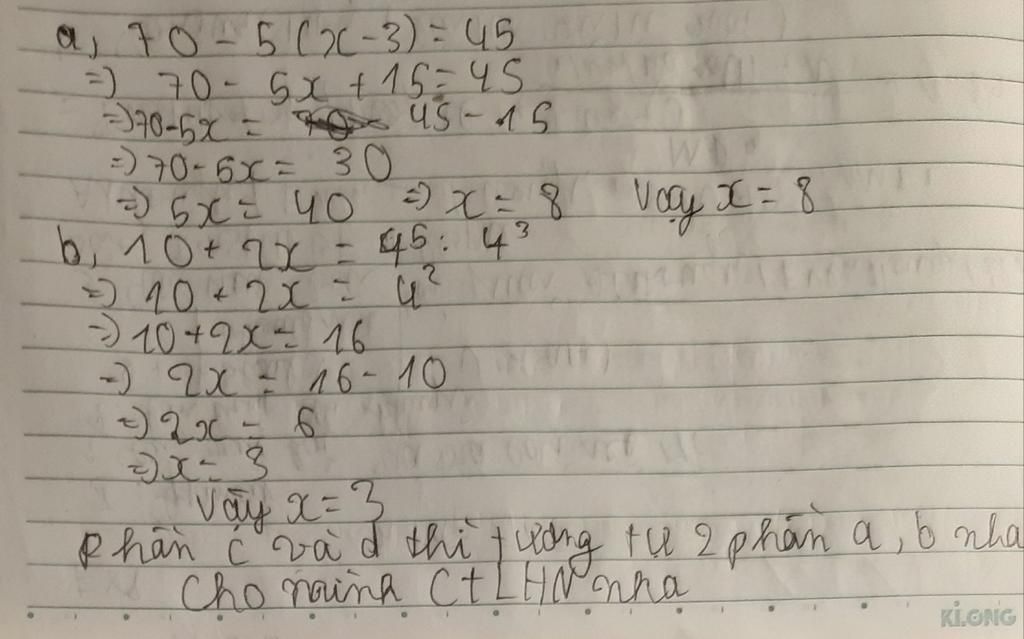 a, 70 - 5 (x - 3) = 45
=) 70 - 5x + 15 = 45
=) 70 - 5x = 45 - 15
=) 70 - 5x = 30
=) 5x = 40 =) x = 8 Vậy x = 8
b, 10 + 2x = 4⁵ : 4³
=) 10 + 2x = 4²
=) 10 + 2x = 16
=) 2x = 16 - 10
=) 2x = 6
=) x = 3
Vậy x = 3
Phần c và d thì tương tự 2 phần a, b nha
Cho mình CTLHN nha
KLONG